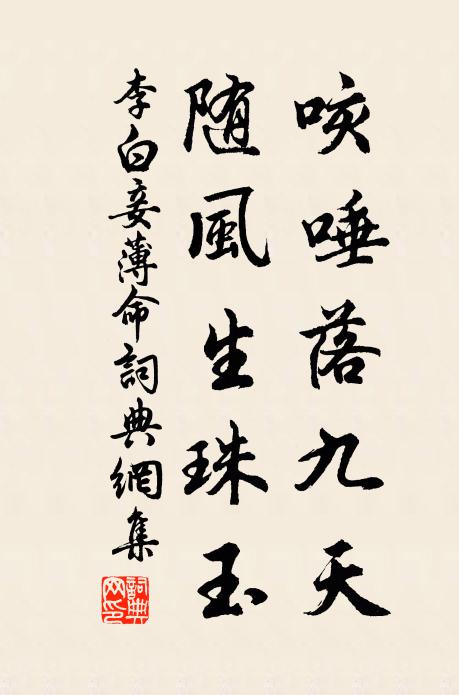 咳唾落九天
随風生珠玉
李白妾薄命詞典網集
詞典網印